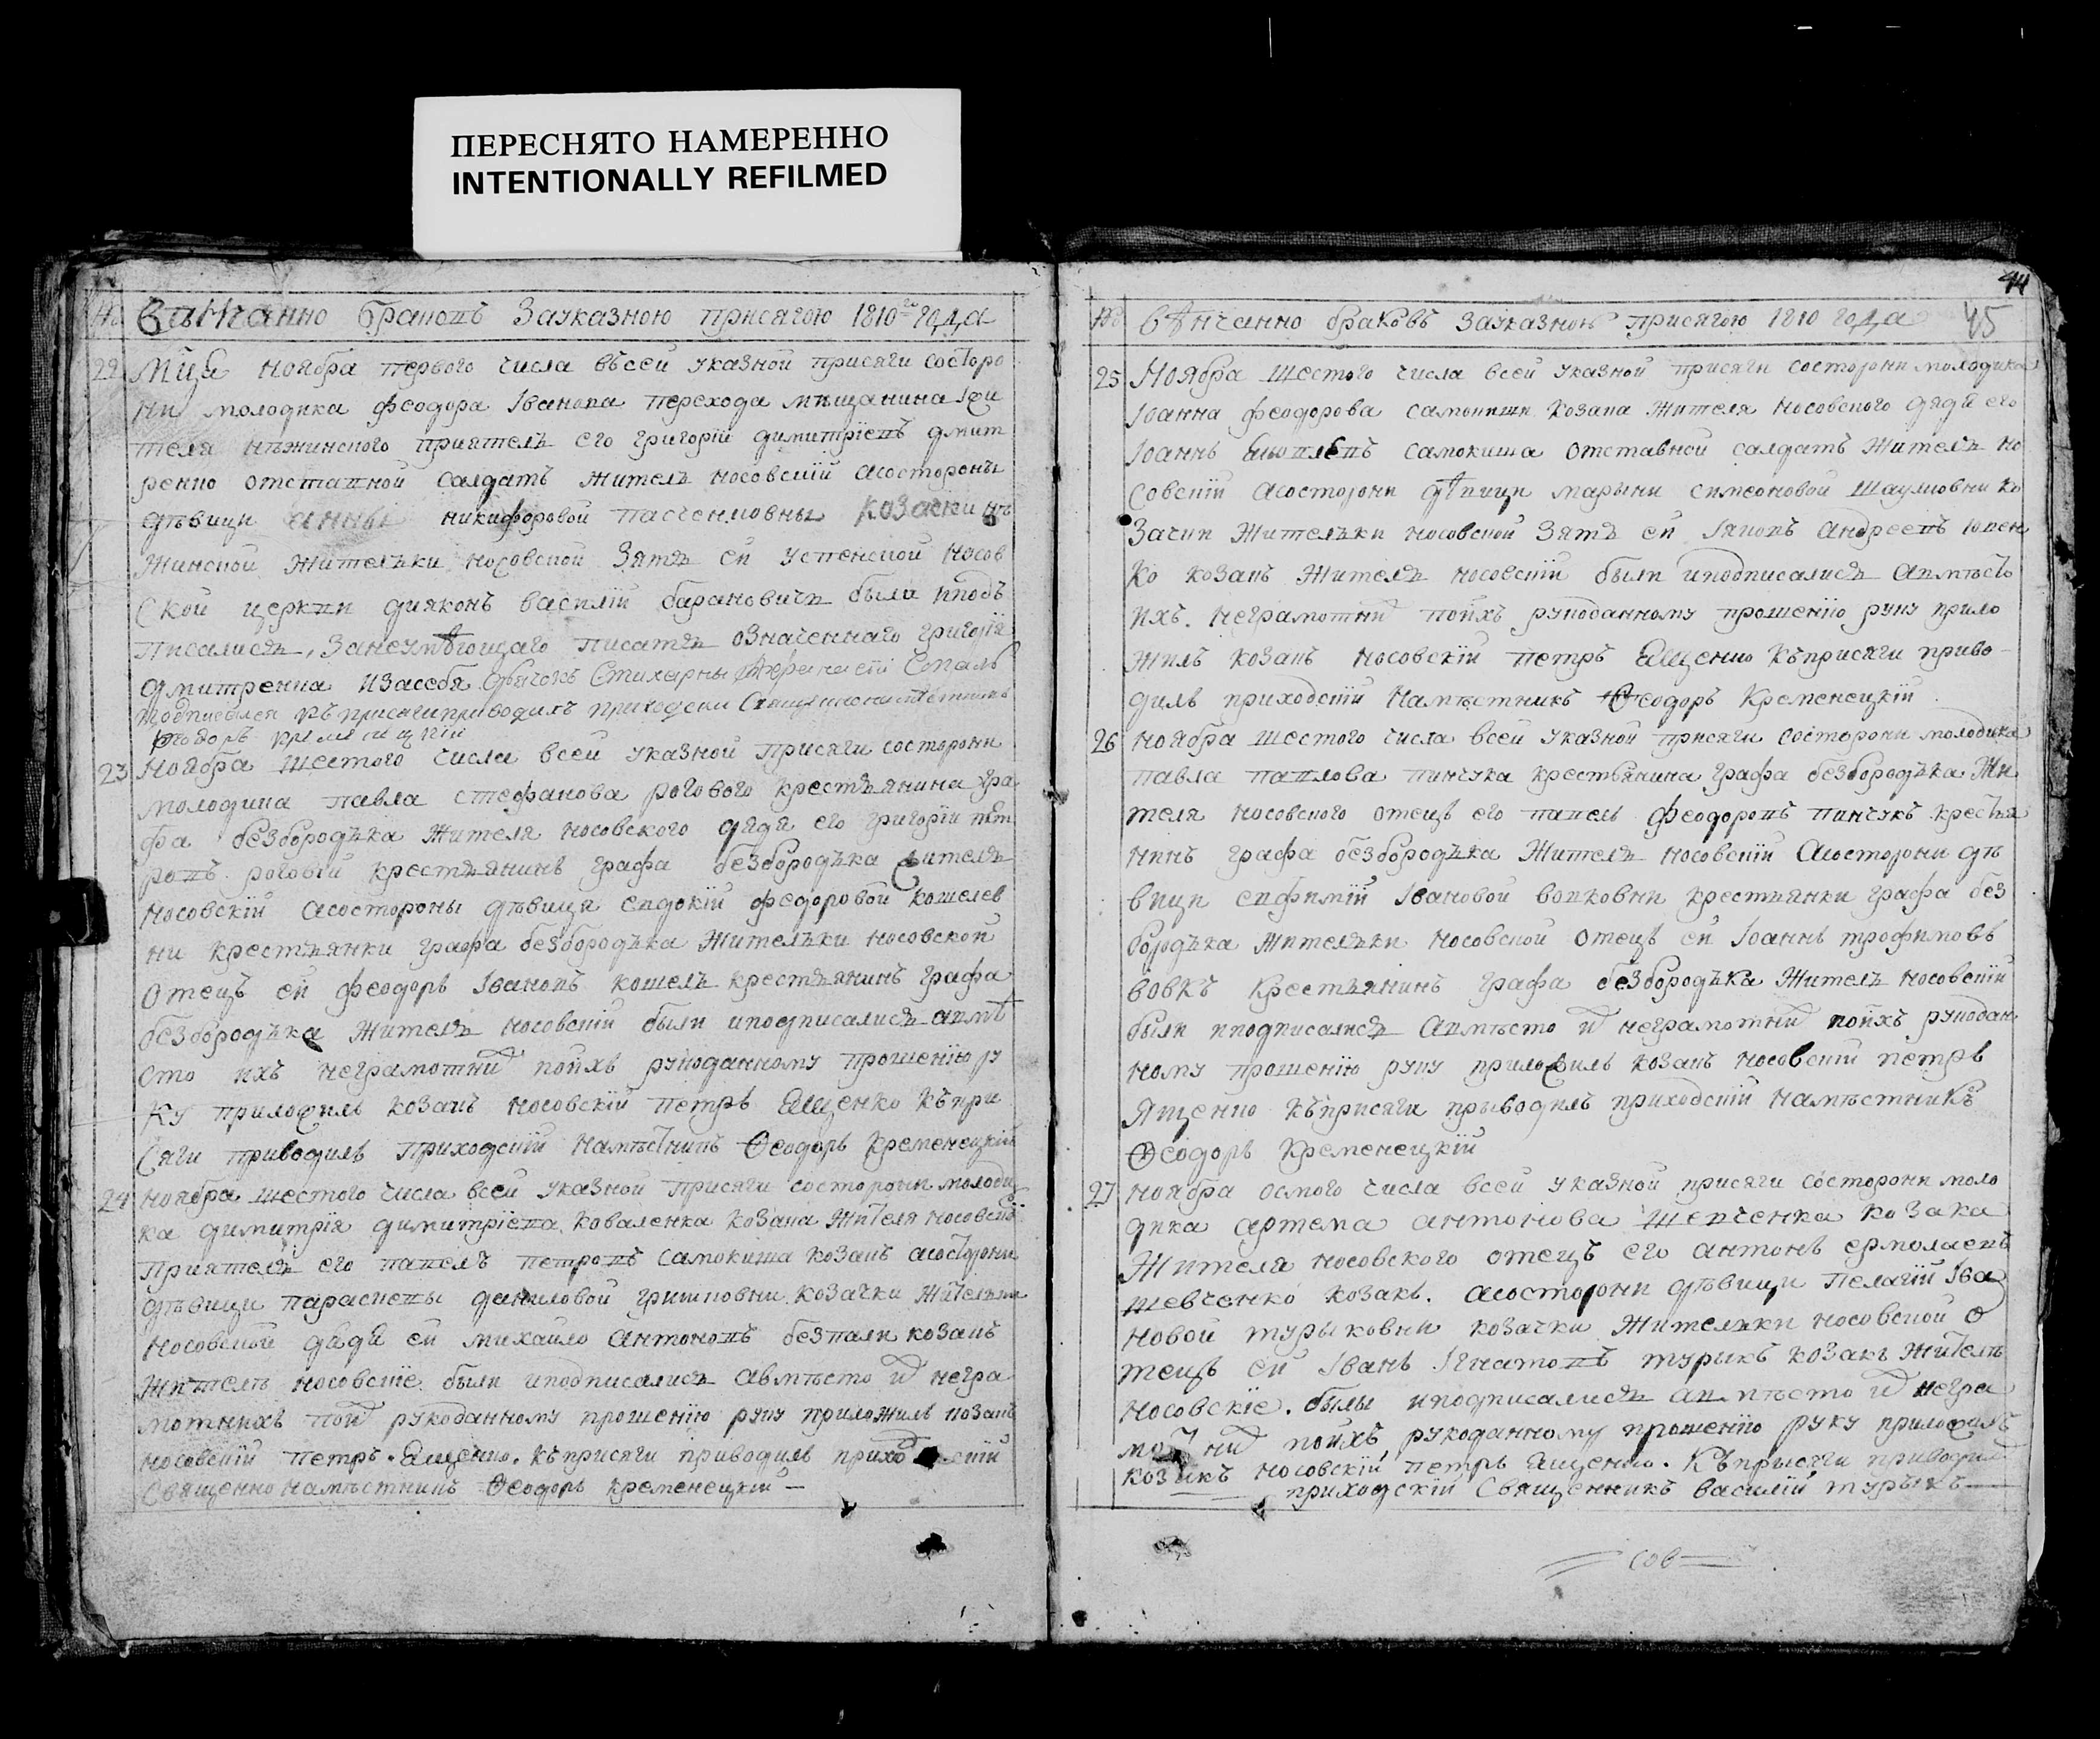 ПЕРЕСНЯТО НАМЕРЕННО
INTENTIONALLY REFILMED
№ Вѣнчанно браковъ Зауказною присягою 1810го года
22 Мца Ноября первого числа въсей указной присяги состоро
ни молодика феодора Іванова перехода мѣщанина жи
теля нѣжинского приятель его григорій димитріевъ дмит
ренко отставной салдатъ житель носовскій асостороны
дѣвици анны никифоровой пасченковны козачки нѣ
жинской жительки носовской Зять ей успенской носов
ской церкви дияконъ василій барановичъ были иподъ
писались, Занеумѣющаго писать означеннаго григорія
дмитренка изасебя
подписался къприсяги приводилъ приходски
феодоръ кременецкій
23 Ноября шестого числа всей указной присяги состорони
молодика павла стефанова рогового крестьянина гра
фа безбородька жителя носовского дядя его григорій пет
ровъ роговій крестьянинъ графа безбородька житель
носовскій асостороны дѣвици евдокій федоровой кошелев
ни крестьянки графа безбородька жительки носовской
отецъ ей феодоръ Івановъ кошель крестьянинъ графа
безбородька житель носовскій были иподписались авмѣ
сто ихъ неграмотних поихъ рукоданному прошенію ру
ку приложилъ козакъ носовскій петръ Ященко къпри
сяги приводилъ приходскій намѣстникъ Ѳеодоръ кременецкій
24 ноября шестого числа всей указной присяги состорони молоди
ка димитрія димитріева коваленка козака жителя носовской
приятель его павелъ петровъ самокиша козакъ асосторони
дѣвици параскевы даниловой гришковни козачки жительки
носовской дядя ей михайло антоновъ безпали козакъ
житель носовскіе были иподписались авмѣсто их негра
мотнихъ поих рукоданному прошенію руку приложилъ козакъ
носовскій петръ Ященко. къприсяги приводилъ приходскій
священно намѣстникъ Ѳеодоръ кременецкій —
44
45
№ вѣнчанно браковъ зауказною присягою 1810 года
25 Ноября шестого числа всей указной присяги состорони молодика
Іоанна феодорова самокиши козака жителя носовского дядя его
Іоаннъ самокиша отставной салдатъ житель но
совскій асосторони дѣвици марыни симеоновой шаулковни ко
зачки жительки носовской зять ей Іяковъ андреевъ
ко козакъ житель носовскій были иподписались авмѣсто
ихъ. неграмотних поихъ рукоданному прошенію руку прило
жилъ козакъ носовскій петръ Ященко къприсяги приво-
дилъ приходскій намѣстникъ Ѳеодоръ Кременецкій
26 ноября шестого числа всей указной присяги состорони молодика
павла павлова пинчука крестьянина графа безбородька жи
теля носовского отецъ его павелъ феодоровъ пинчукъ крестья
нинъ графа безбородька житель носовскій асосторони дѣ
вици евфимій Івановой вовковни крестьянки графа без
бородька жительки носовской отецъ ей Іоаннъ трофимовъ
вовкъ крестьянинъ графа безбородька житель носовскій
были иподписались авмѣсто их неграмотних поихъ рукодан
ному прошенію руку приложилъ козакъ носовскій петръ
Ященко къприсяги приводилъ приходскій намѣстникъ
Ѳеодоръ Кременецкій
27 ноября осмого числа всей указной присяги состорони моло
дика артема антонова шевченка козака
жителя носовского отецъ его антонъ ермолаевъ
шевченко козакъ. асосторони дѣвици пелагій Іва
новой турыковни козачки жительки носовской о
тецъ ей Іванъ Ігнатовъ турыкъ козакъ житель
носовскіе. былы иподписались авмѣсто их негра
мотних поихъ рукоданному прошенію руку приложилъ
козакъ носовскій петръ Ященко. къприсяги приводил
приходскій священникъ василій турыкъ —
сов